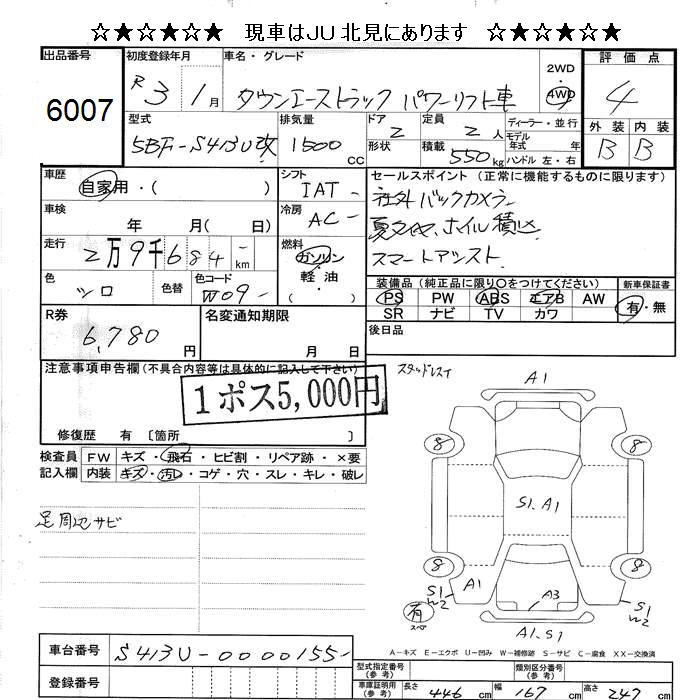 ☆★☆★☆★ 現車はJU北見にあります ☆★☆★☆★
出品番号
6007
初度登録年月
R3年1月
車名・グレード
タウンエーストラック パワーリフト車
2WD
・
4WD
評価点
4
外装 内装
B B
型式
5BF-S413U改
排気量
1500
CC
ドア
形状
2
定員
2人
積載
550kg
ディーラー・並行
モデル
年式 年
ハンドル 左・右
車歴
自家用・( )
シフト
IAT-
セールスポイント (正常に機能するものに限ります)
社外バックカメラ
夏タイヤ、ホイル積込
スマートアシスト
車検
年 月( 日)
冷房
AC-
走行
2万9千684-km
燃料
ガソリン
・
軽・油
( )
色
シロ
色替
色コード
W09-
装備品 (純正品に限り〇をつけてください)
PS PW ABS エアB AW
SR ナビ TV カワ
新車保証書
有・無
R券
6,780円
名変通知期限
月 日
後日品
注意事項申告欄 (不具合内容等は具体的に記入して下さい)
1ポス5,000円
修復歴 有 〔箇所 〕
スタッドレス
検査員
記入欄
FW キズ・飛石・ヒビ割・リペア跡・×要
内装 キズ・汚レ・コゲ・穴・スレ・キレ・破レ
足周辺サビ
A1
8 8
S1、A1
8 8
A1
A3
S1
W2
S1
W2
有
スペア
A1、S1
A-キズ E-エクボ U-凹み W-補修跡 S-サビ C-腐食 XX-交換済
車台番号
S413U-0000155-
登録番号
型式指定番号
(参考)
類別区分番号
(参考)
車庫証明用
(参考)
長さ 446 cm 幅 167 cm 高さ 247 cm